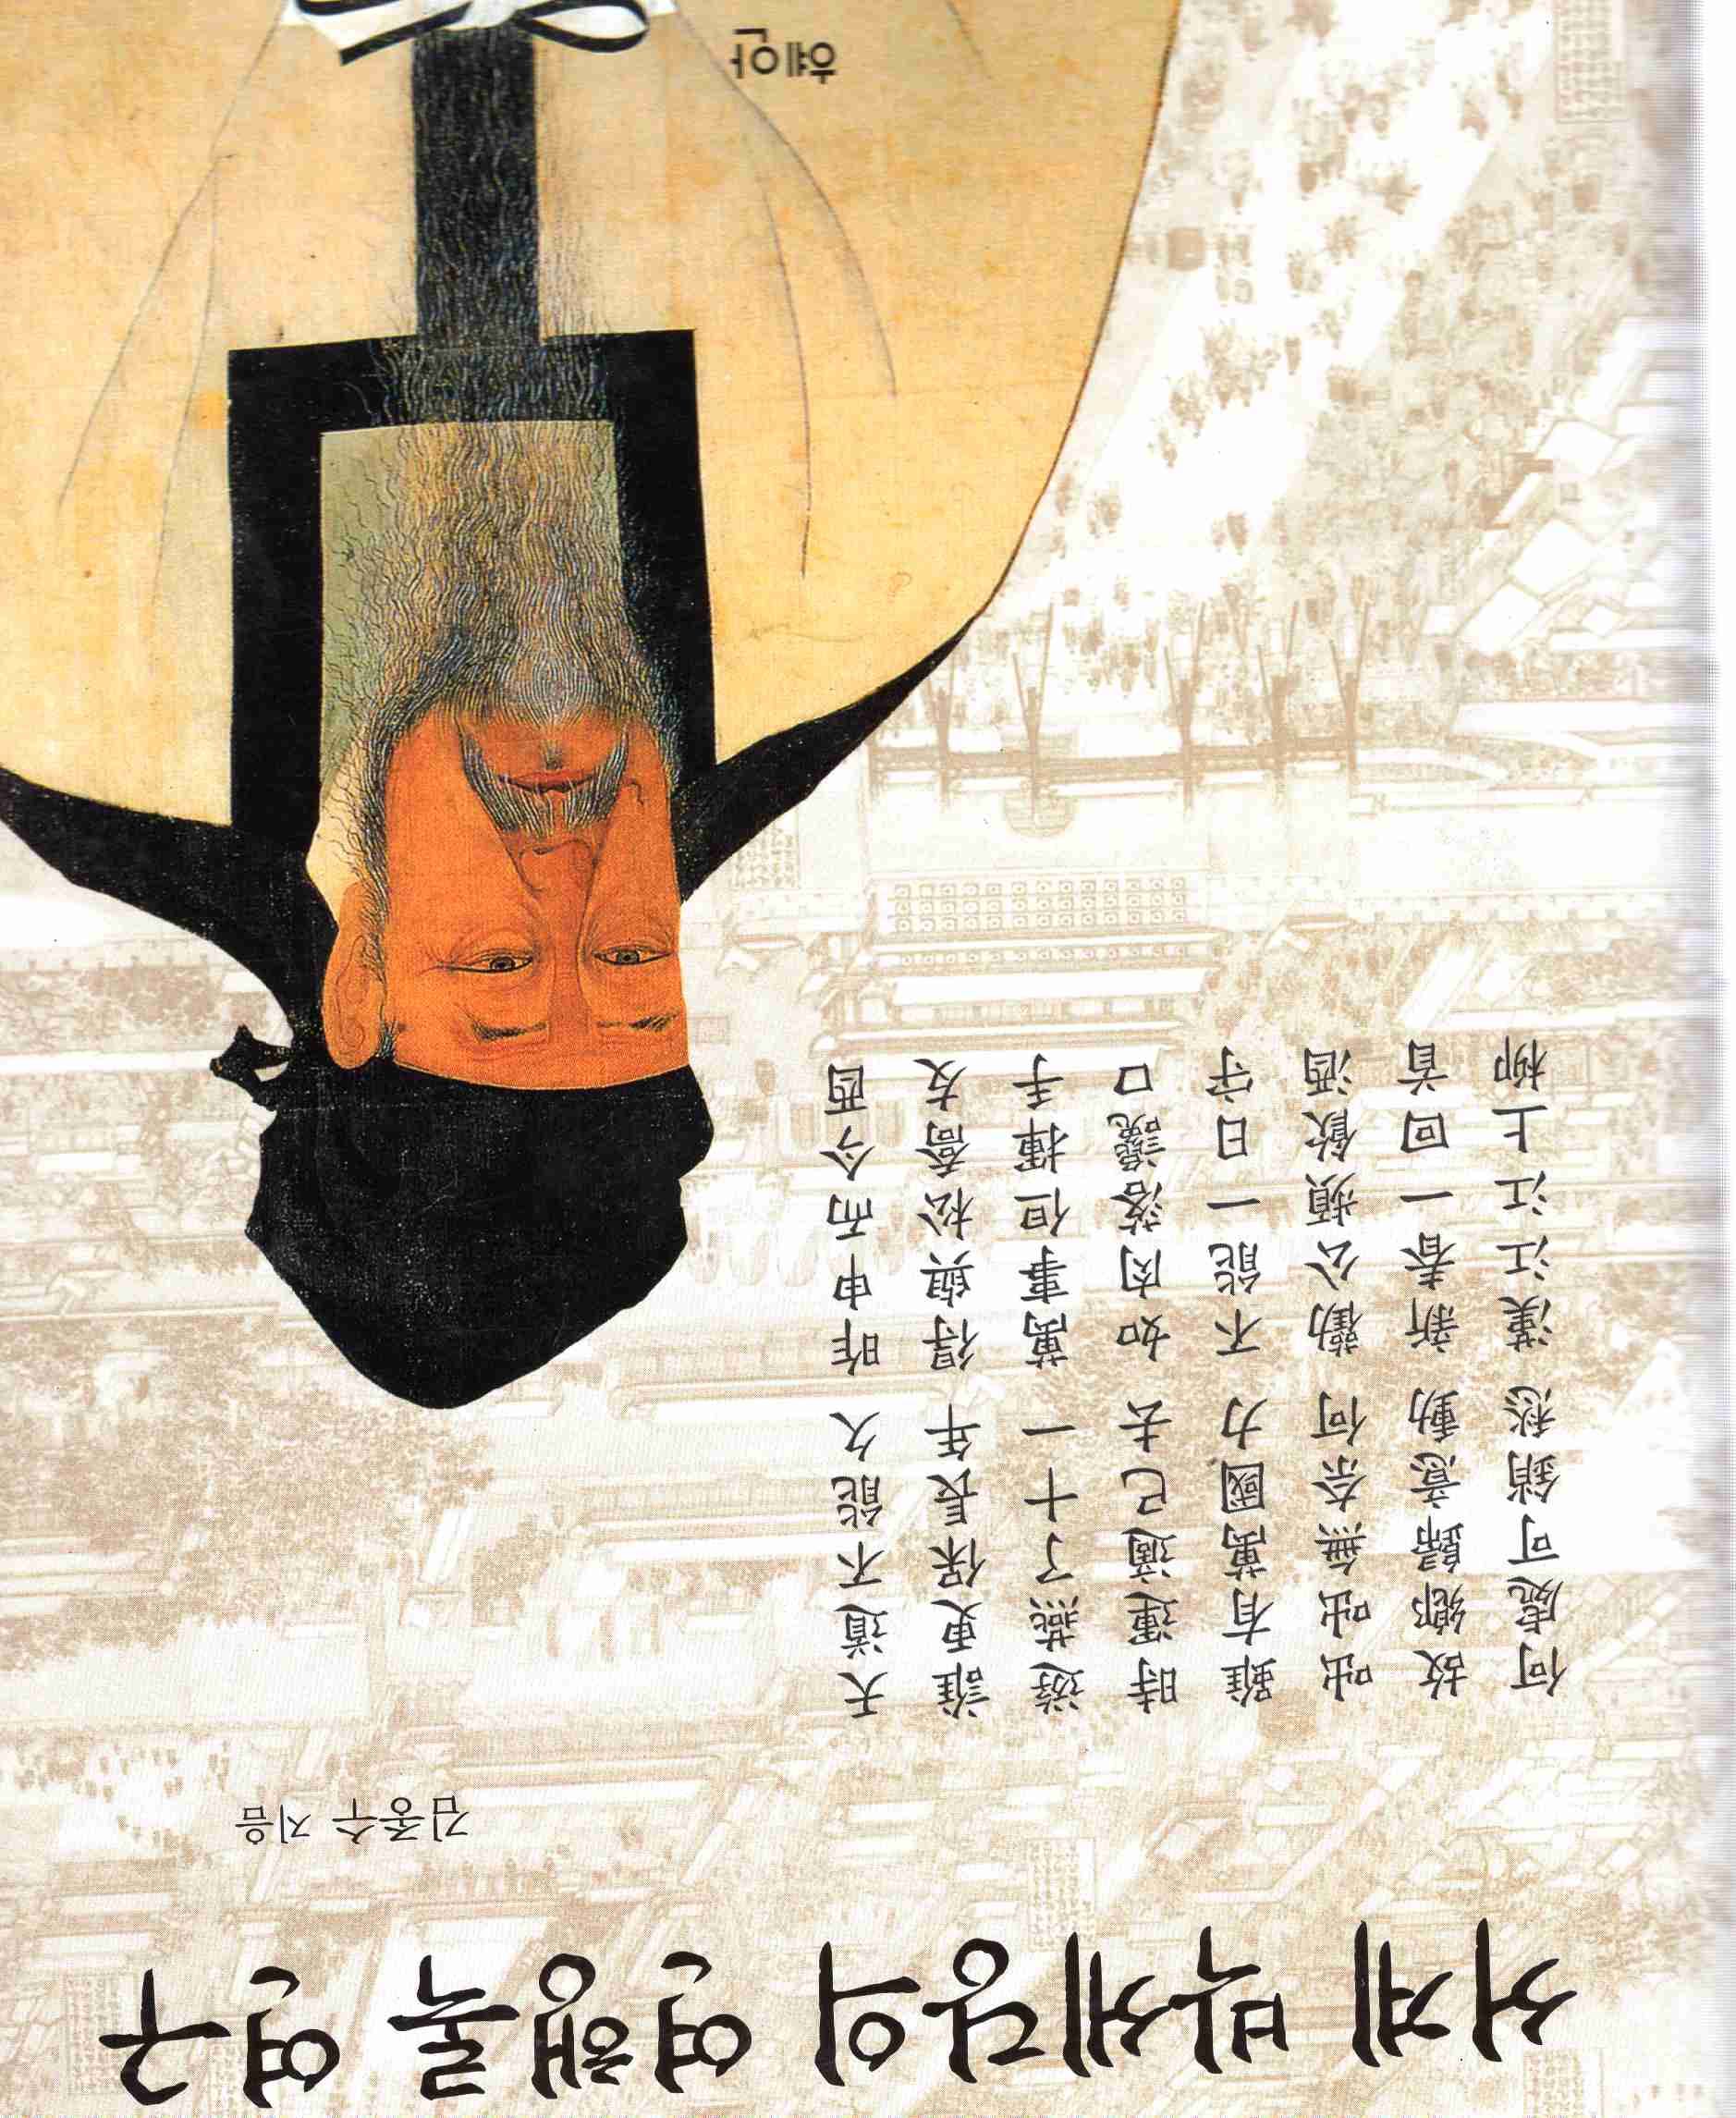 서계 박세당의 연행록 연구
김종수 지음
天道不能久 昨申而今酉
誰更保長年 得與松喬友
遊燕了十一 萬事但揮手
時運適已去 如肉落讒口
雖有萬國力 不能一日守
咄咄無奈何 勸公頻飮酒
故鄕歸意動 新春一回首
何處可銷愁 漢江江上柳
혜안